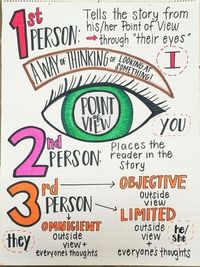 1st PERSON:
Tells the story from
his/her Point of View
→ through "their eyes"
I
A WAY OF THINKING OR LOOKING AT SOMETHING!
POINT
of
VIEW
YOU
2nd PERSON:
Places the
reader in the
story
3rd PERSON
→ OBJECTIVE
outside
view
LIMITED
outside
view
+
everyone's thoughts
he/
she
OMNICIENT
outside
view +
everyone's thoughts
they